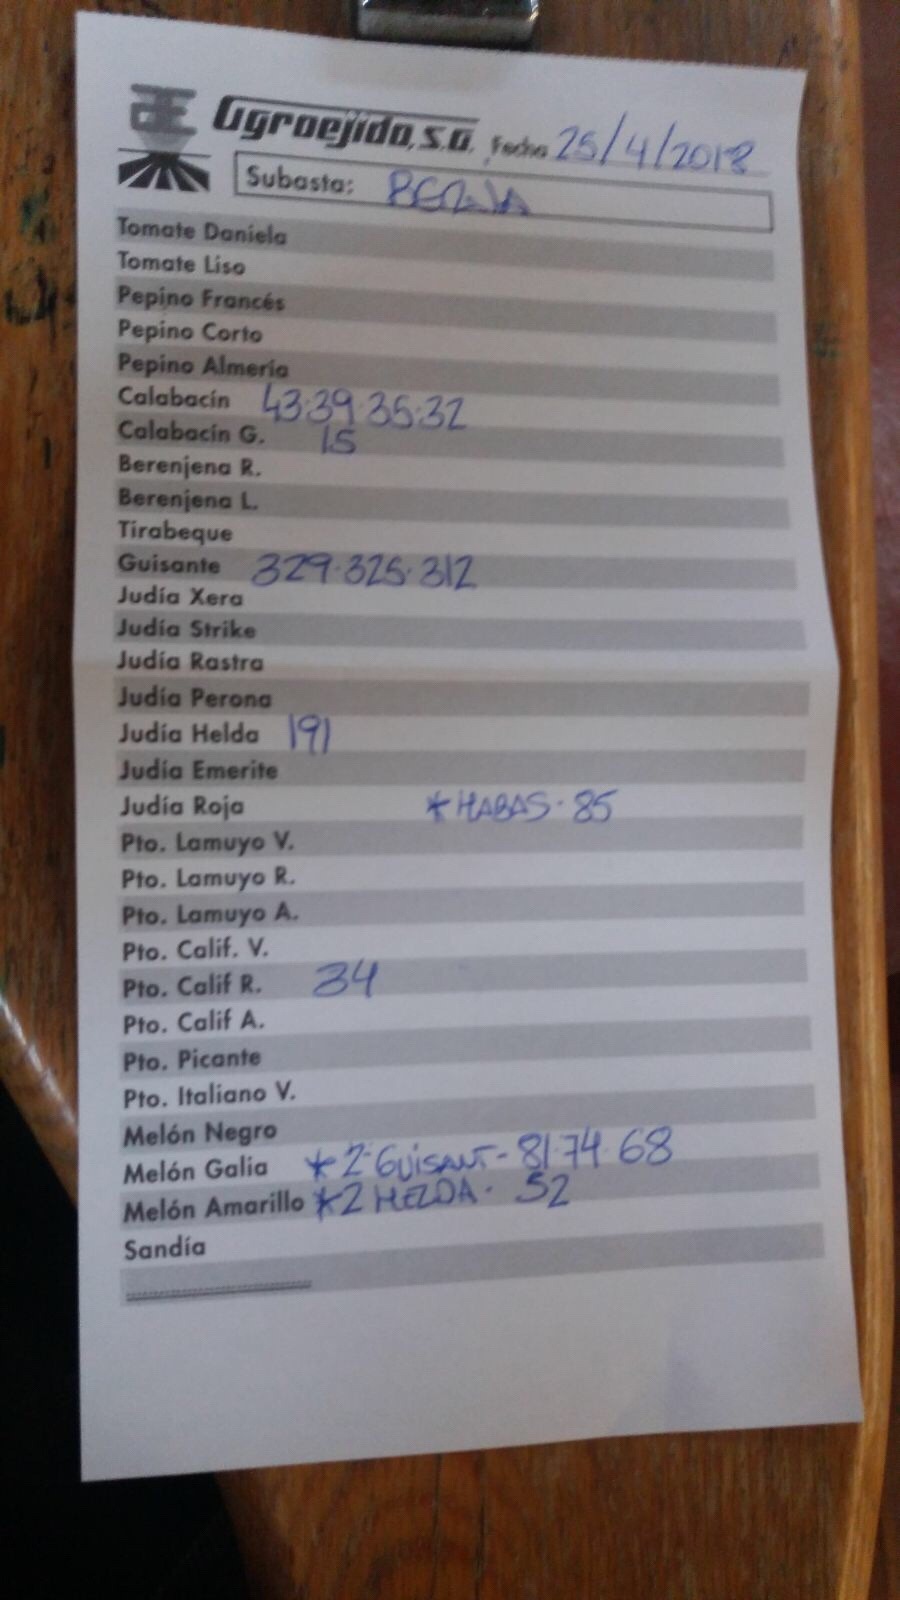 AE Agroejido, S.A. Fecha 25/4/2018
Subasta: BERJA
Tomate Daniela
Tomate Liso
Pepino Francés
Pepino Corto
Pepino Almería
Calabacín 43·39·35·32
Calabacín G. 15
Berenjena R.
Berenjena L.
Tirabeque
Guisante 329·325·312
Judía Xera
Judía Strike
Judía Rastra
Judía Perona
Judía Helda 191
Judía Emerite
Judía Roja *HABAS·85
Pto. Lamuyo V.
Pto. Lamuyo R.
Pto. Lamuyo A.
Pto. Calif. V.
Pto. Calif R. 34
Pto. Calif A.
Pto. Picante
Pto. Italiano V.
Melón Negro
Melón Galia *2·GUISANT-81·74·68
Melón Amarillo *2 HELDA·52
Sandía